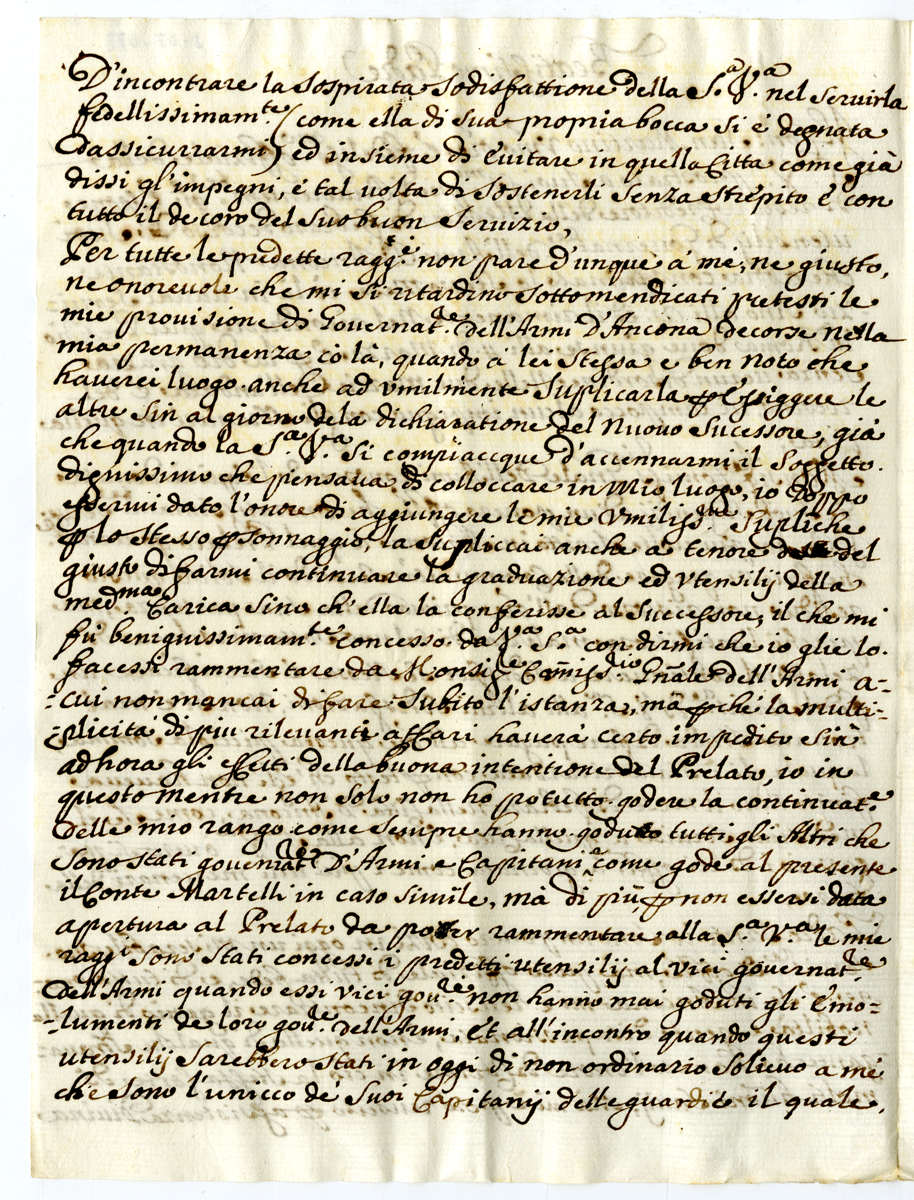 D'incontrare la sospirata sodisfattione della S.ª V.ª nel seruirla
fedellissimam.te (come ella di sua propria bocca si é degnata
d'assicurrarmi) ed insieme di éuitare in quella Citta come già
dissi gl'impegni, é tal volta di sostenerli senza strépito é con
tutto il decoro del suo buon seruizio,
Per tutte le predette ragg.i é non pare d'unque á mé, ne giusto,
ne onoreuole che mi si ritardino sotto mendicati pretesti le
mie prouisione di Gouernat.re dell'Armi d'Ancona decorse nella
mia permanenza cò là, quando á lei stessa e ben noto che
hauerei luogo anche ad vmilmente suplicarla ꝑ esiggere le
altre sin al giorno dela dichiaratione del nuouo sucessore, già
che quando la S.ª V.ª si compiaccque d'accennarmi il soggetto
dignissimo che pensaua di colloccare in mio luogo, io doppo
essermi dato l'onore di aggiungere le mie vmiliss.me supliche
ꝑ lo stesso ꝑsonnaggio, la supliccai anche a tenore del
giusto di farmi continuare la graduazione ed vtensilij della
med.ma Carica sino ch'ella la conferisse al successore, il che mi
fù benignissimam.te concesso da V.ª S.ª con dirmi che io glie lo
facessi rammentare da Monsig.re Com̃iss.rio Gñale dell'Armi a-
-cui non mancai di fare subito l'istanza, mà ꝑché la multi-
-plicità di piu rileuanti affari hauerà certo impedito sin
ad hora gli effetti della buona intentione del Prelato, io in
questo mentre non solo non ho potutto godere la continuat.e
delle mio rango come sempre hanno goduto tutti gli Altri che
sono stati gouernat.ri d'Armi e Capitani come gode al presente
il Conte Martelli in caso simile, mà di più, ꝑ non essersi data
apertura al Prelato da poter rammentare alla S.ª V.ª le mie
ragg.i sono stati concessi i predetti utensilij al vici gouernat.re
dell'Armi quando essi vici gou.ri non hanno mai goduti gli émo-
-lumenti de loro gou.ri dell'Armi, ét all'incontro quando questi
utensilij sarebbero stati in oggi di non ordinario solieuo a mé
ché sono l'unicco dé suoi Capitanij delle guardie il quale,